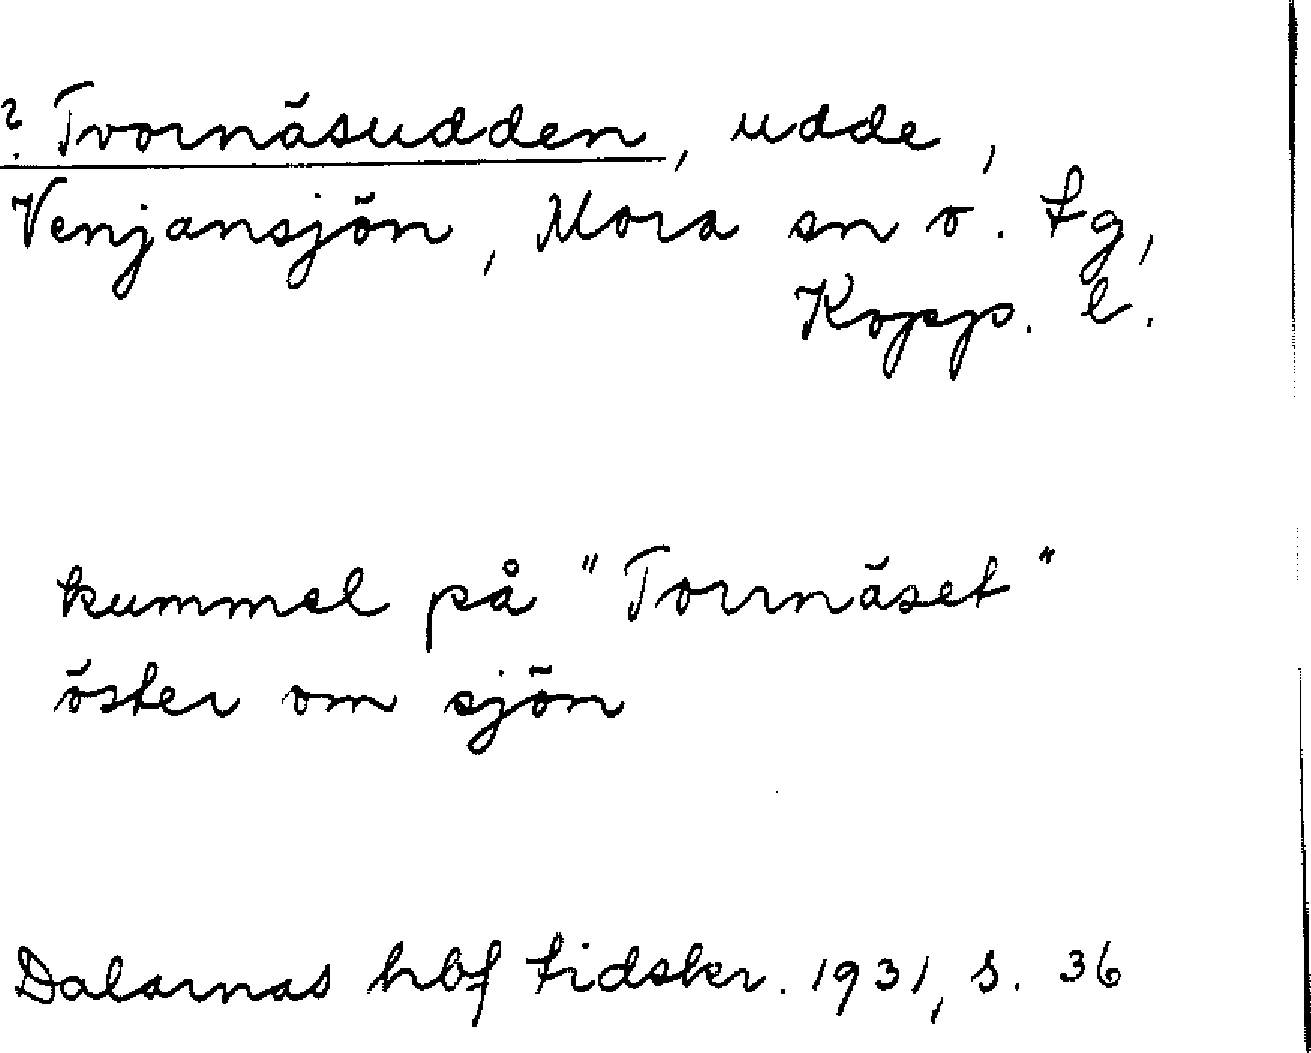 ? Tvornäsudden, udde,
Venjansjön, Mora sn o. tg,
Kopp. l.
kummel på "Torrnäset"
öster om sjön
Dalarnas hbf tidskr. 1931, s. 36